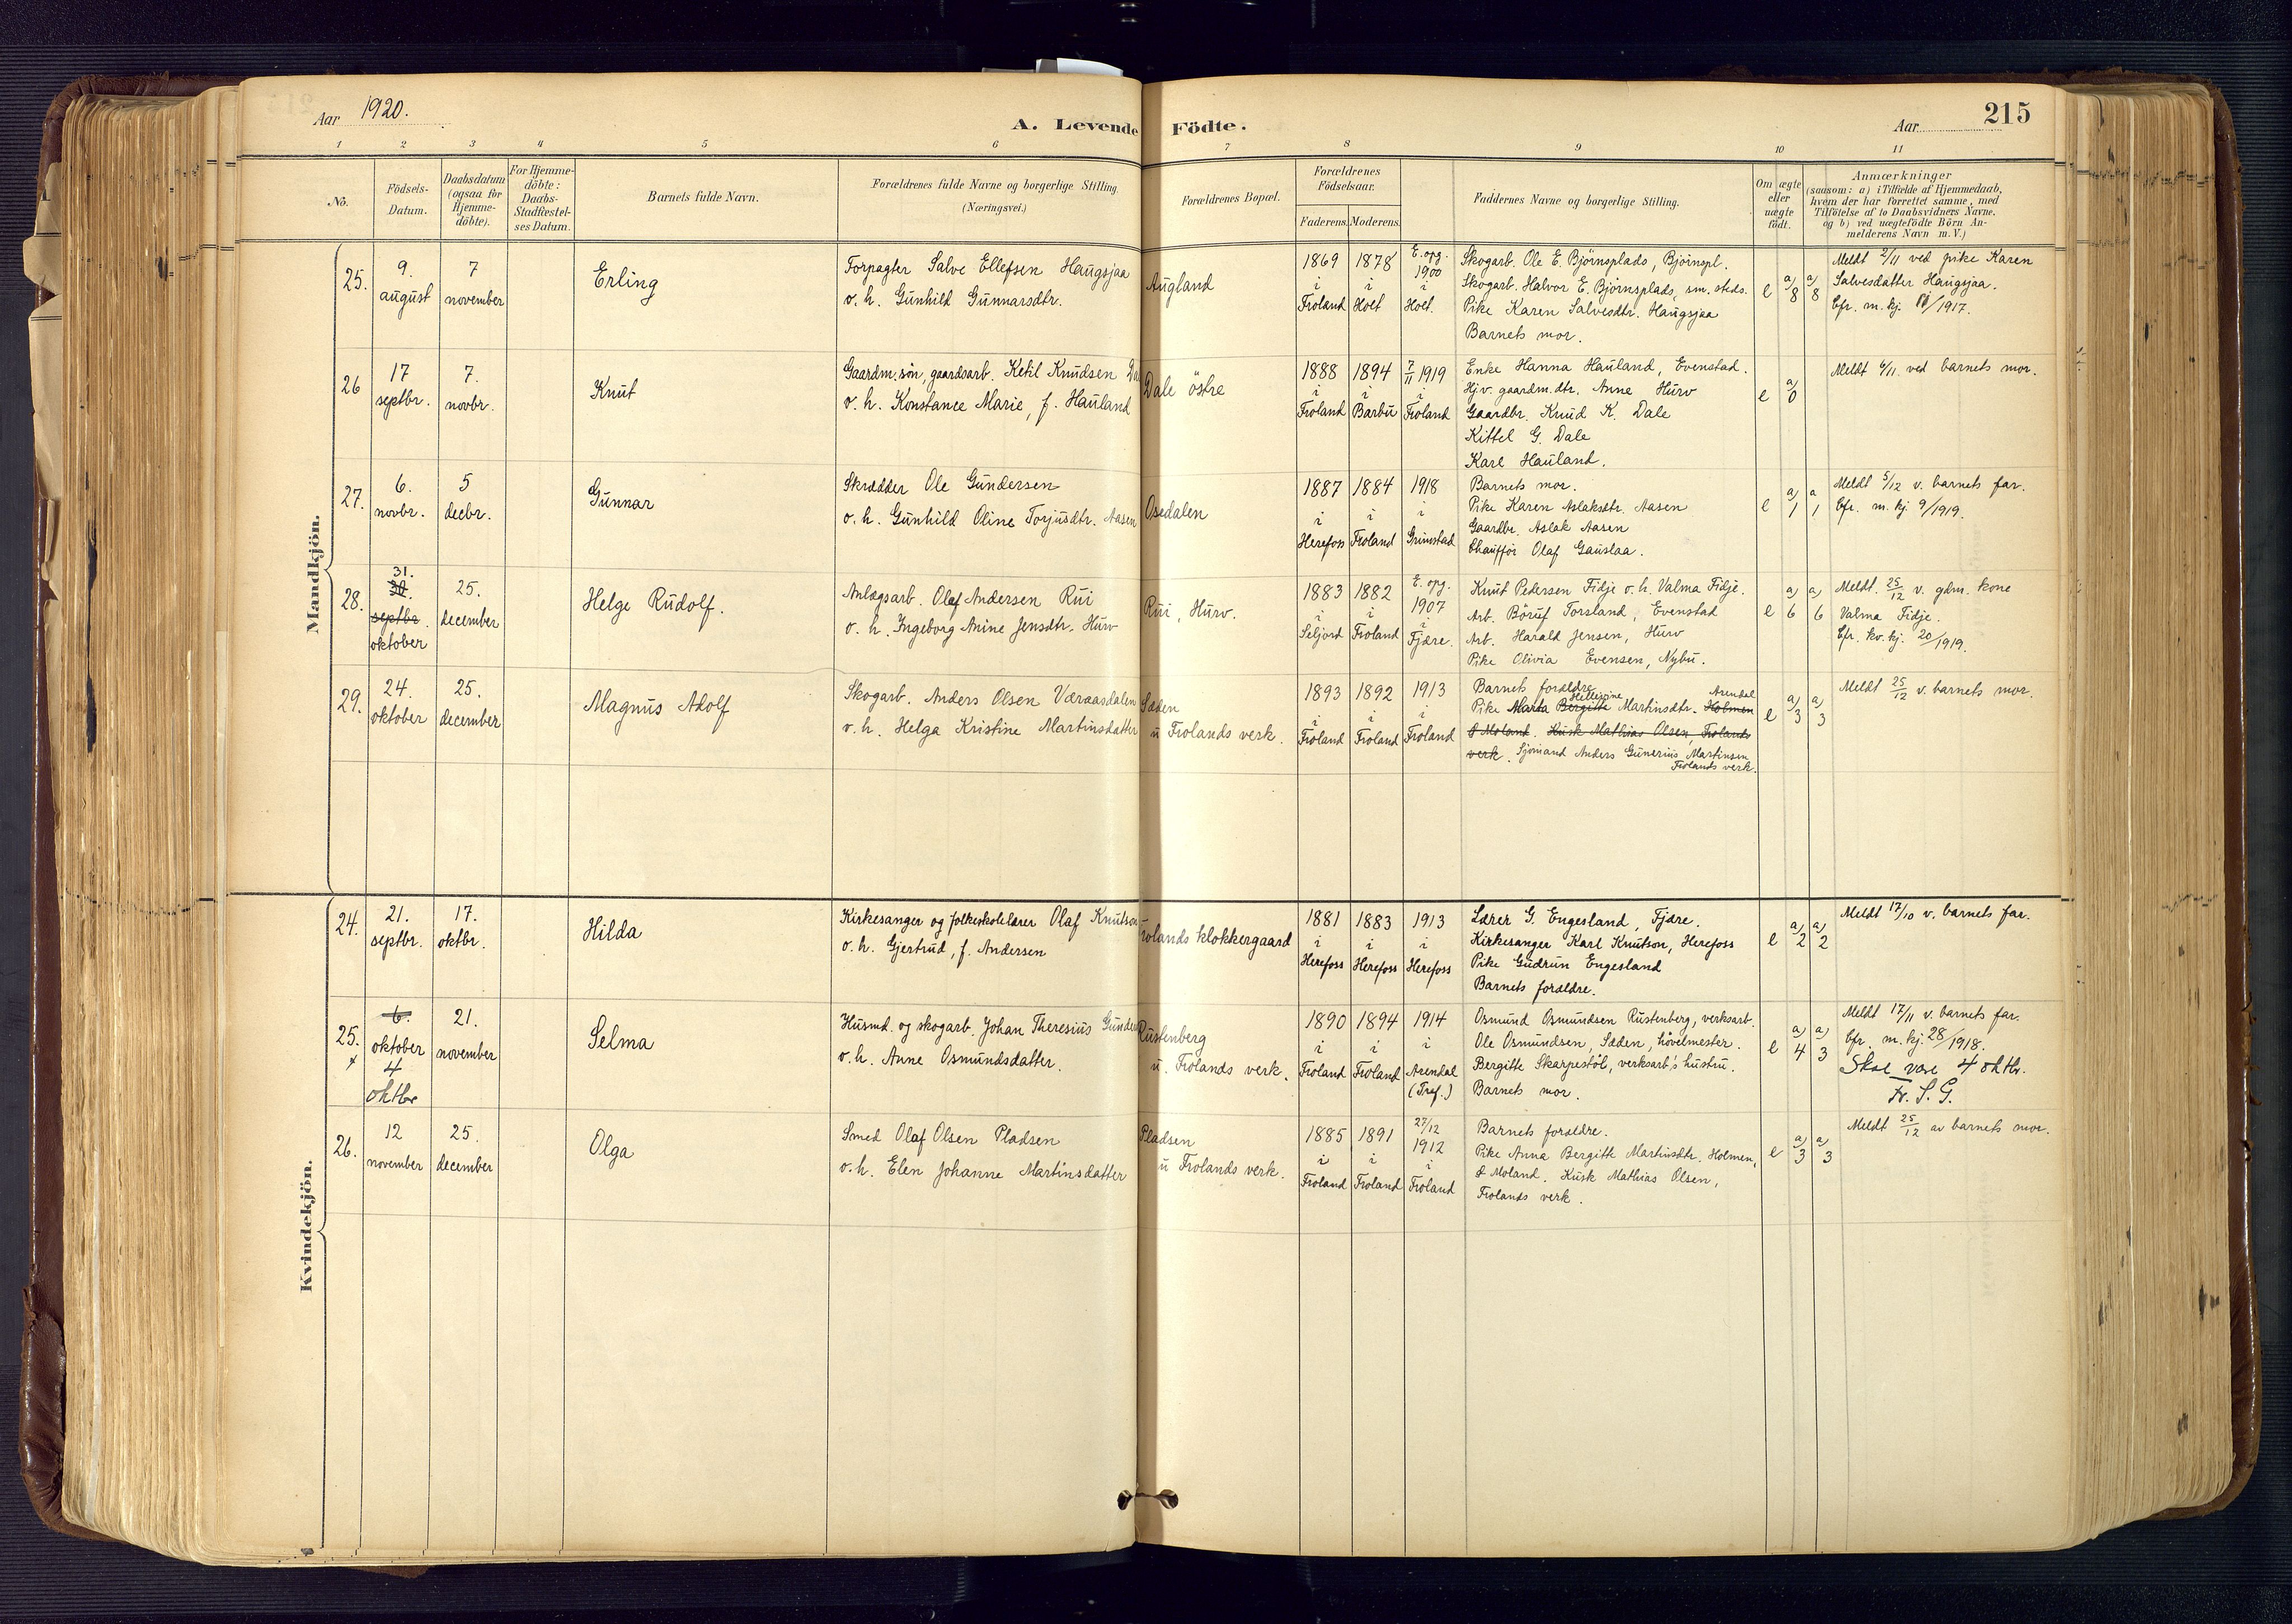 Aar 1920.
A. Levende Födte.
Aar
215
1 2 3 4 5 6 7 8 9 10 11
No.
Födsels-
Datum.
Daabsdatum
(ogsaa for
Hjemme-
döbte).
For Hjemme-
döbte:
Daabs-
Stadfæstel-
ses Datum.
Barnets fulde Navn.
Forældrenes fulde Navne og borgerlige Stilling.
(Næringsvei.)
Forældrenes Bopæl.
Forældrenes
Födselsaar.
Faderens. Moderens.
Faddernes Navne og borgerlige Stilling.
Om ægte
eller
uægte
födt.
Anmærkninger
(saasom: a) i Tilfælde af Hjemmedaab,
hvem der har forrettet samme, med
Tilföielse af to Daabsvidners Navne,
og b) ved uægtefödte Börn An-
melderens Navn m. V.)
Mandkjön.
25.
9.
august
7
november
Erling
Forpagter Salve Ellefsen Haugsjaa
o. h. Gunhild Gunnarsdtr.
Augland
1869
i
Froland
1878
i
Holt
E. opg.
1900
i
Holt.
Skogarb. Ole E. Björnsplads, Björnspl.
Skogarb. Halvor E. Björnsplads, sm. steds.
Pike Karen Salvesdtr. Haugsjaa
Barnets mor.
e
a) 8
a) 8
Meldt 2/11 ved pike Karen
Salvesdatter Haugsjaa.
Cfr. m. kj. /1917.
26
17
septbr.
7.
novbr.
Knut
Gaardm. sön, gaardsarb. Ketil Knudsen Da
o. h. Konstance Marie, f. Hauland
Dale östre
1888
i
Froland
1894
i
Barbu
7/11 1919
i
Froland
Enke Hanna Hauland, Evenstad.
Hjv. gaardm.dtr. Anne Hurv
Gaardbr. Knud K. Dale
Kittel G. Dale
Karl Hauland.
e
a) 0
Meldt 6/11 ved barnets mor.
27.
6.
novbr.
5
decbr.
Gunnar
Skrædder Ole Gundersen
o. h. Gunhild Oline Torjusdtr. Aasen
Osedalen
1887
i
Herefoss
1884
i
Froland
1918
i
Grimstad
Barnets mor.
Pike Karen Aslaksdtr. Aasen
Gaardbr. Aslak Aasen
Chaufför Olaf Gauslaa.
e
a) 1
a 1
Meldt 5/12 v. barnets far.
Cfr. m. kj 9/1919.
28.
31.
30.
septbr.
oktober
25.
december
Helge Rudolf.
Anlægsarb. Olaf Andersen Rui
o. h. Ingeborg Anine Jensdtr. Hurv
Rui, Hurv.
1883
i
Seljord
1882
i
Froland
E. opg.
1907
i
Fjære.
Knut Pedersen Fidje o. h. Valma Fidje.
Arb. Böruf Torsland, Evenstad
Arb. Harald Jensen, Hurv
Pike Olivia Evensen, Nybu.
e
a) 6
a) 6
Meldt. 25/12 v. gdm. kone
Valma Fidje.
Cfr. kv. kj. 20/1919.
29.
24.
oktober
25.
december
Magnus Adolf
Skogarb. Anders Olsen Væraasdalen
o. h. Helga Kristine Martinsdatter
Sæden
u Frolands verk.
1893
i
Froland
1892
i
Froland
1913
i
Froland
Barnets forældre
Pike Marta Bergitte Martinsdtr. Holmen Arendal
Ö Moland. Kusk Mathias Olsen, Frolands
verk. Sjömand Anders Gunerius Martinsen
Frolands verk.
e
a) 3
a) 3
Meldt 25/12 v. barnets mor.
Kvindekjön.
24.
21.
septbr.
17.
oktbr.
Hilda
Kirkesanger og folkeskolelærer Olaf Knutson
o. h. Gjertrud, f. Andersen
Frolands klokkergaard
1881
i
Herefoss
1883
i
Herefoss
1913
i
Herefoss
Lærer G. Engesland, Fjære.
Kirkesanger Karl Knutson, Herefoss
Pike Gudrun Engesland
Barnets forældre.
e
a) 2
a) 2
Meldt 17/10 v. barnets far.
25.
x
6.
oktober
4
oktbr
21.
november
Selma
Husmd. og skogarb. Johan Theresius Gunder
o. h. Anne Osmundsdatter.
Rustenberg
u. Frolands verk.
1890
i
Froland
1894
i
Froland
1914
i
Arendal
(Tref.)
Osmund Osmundsen Rustenberg, verksarb.
Ole Osmundsen, Sæden, hövelmester.
Bergitte Skarpestöl, verksarb's hustru.
Barnets mor.
e
a) 4
a) 3
Meldt 17/11 v. barnets far.
Cfr. m. kj. 28/1918.
Skal være 4 oktbr.
Fr. S. G.
26.
12
november
25.
december
Olga
Smed Olaf Olsen Pladsen
o. h. Elen Johanne Martinsdatter
Pladsen
u Frolands verk.
1885
i
Froland
1891
i
Froland
27/12
1912
i
Froland
Barnets forældre.
Pike Anna Bergitte Martinsdtr. Holmen,
Ö Moland. Kusk Mathias Olsen,
Frolands verk.
e
a) 3
a) 3
Meldt 25/12 av barnets mor.